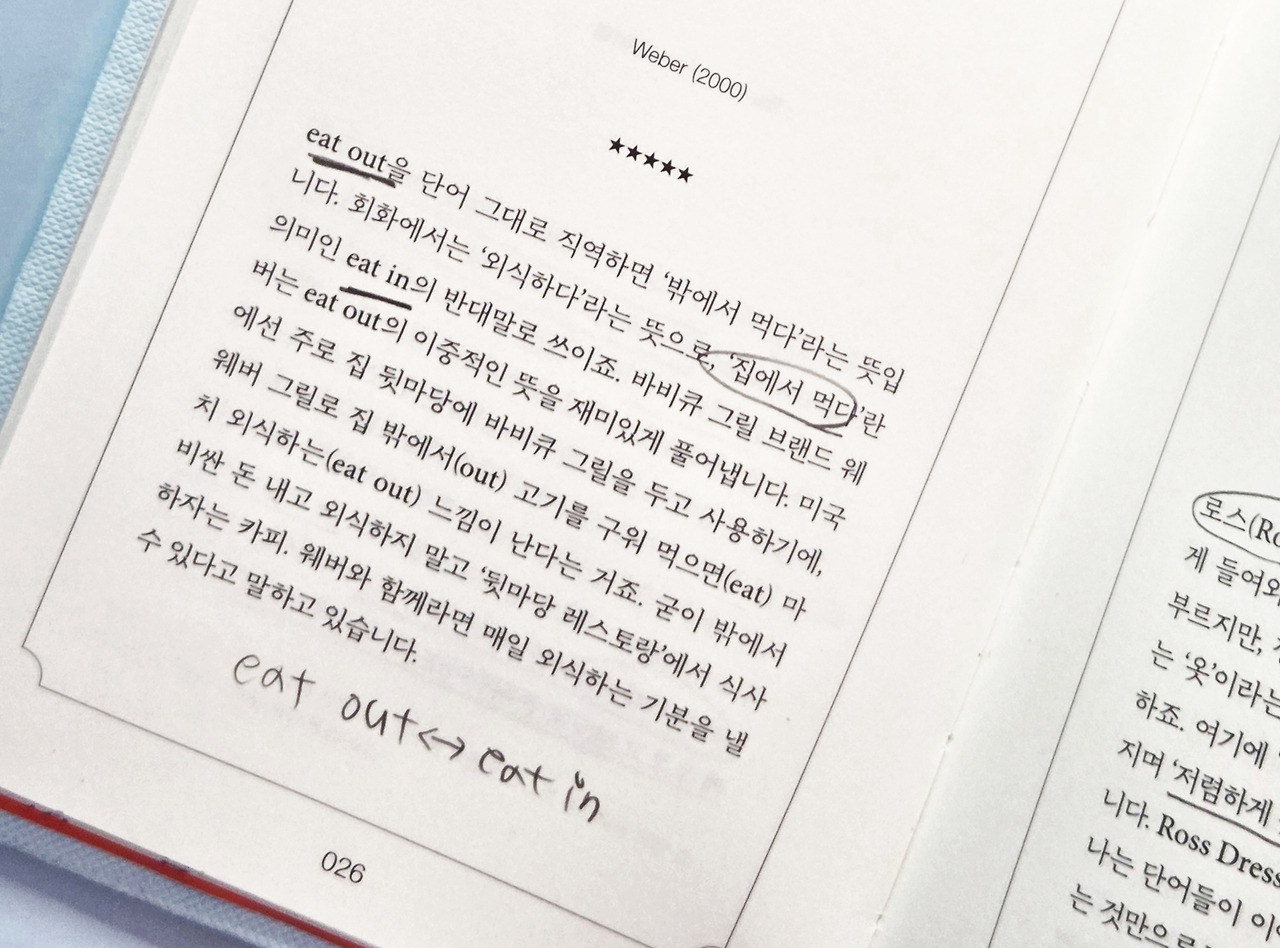 Weber (2000)
★★★★★
eat out을 단어 그대로 직역하면 ‘밖에서 먹다’라는 뜻입
니다. 회화에서는 ‘외식하다’라는 뜻으로, ‘집에서 먹다’란
의미인 eat in의 반대말로 쓰이죠. 바비큐 그릴 브랜드 웨
버는 eat out의 이중적인 뜻을 재미있게 풀어냅니다. 미국
에선 주로 집 뒷마당에 바비큐 그릴을 두고 사용하기에,
웨버 그릴로 집 밖에서(out) 고기를 구워 먹으면(eat) 마
치 외식하는(eat out) 느낌이 난다는 거죠. 굳이 밖에서
비싼 돈 내고 외식하지 말고 ‘뒷마당 레스토랑’에서 식사
하자는 카피. 웨버와 함께라면 매일 외식하는 기분을 낼
수 있다고 말하고 있습니다.
eat out↔eat in
026
로스(Ro
게 들여오
부르지만,
는 ‘옷’이라는
하죠. 여기에
지며 ‘저렴하게
니다. Ross Dress
나는 단어들이 이
는 것만으로